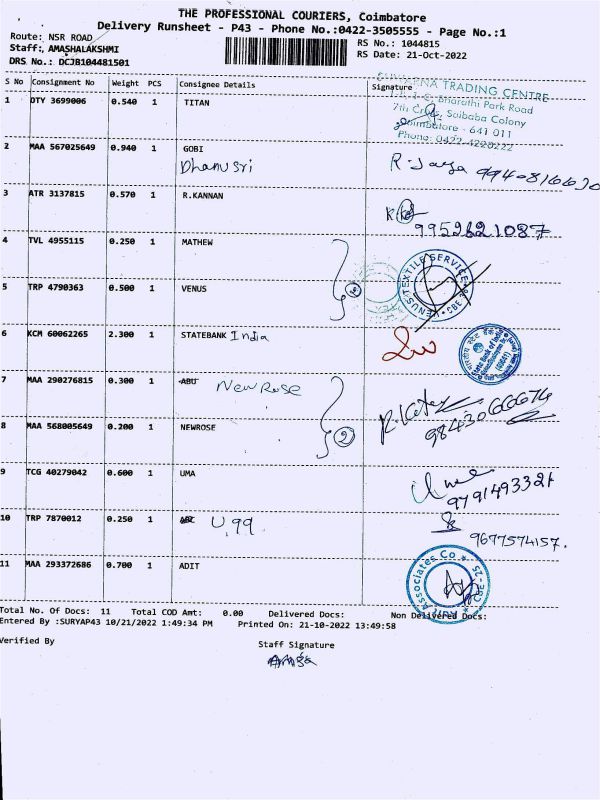 THE PROFESSIONAL COURIERS, Coimbatore
Delivery Runsheet - P43 - Phone No.:0422-3505555 - Page No.:1
Route: NSR ROAD
RS No.: 1044815
Staff:, AMASHALAKSHMI
RS Date: 21-Oct-2022
DRS No.: DCJB104481501
S No Consignment No Weight PCS Consignee Details Signature
TRADING CENTRE
Bharathi Park Road
7th Cross, Saibaba Colony
Coimbatore - 641 011
Phone: 0422-4200222
1 OTY 3699006 0.540 1 TITAN
2 MAA 567025649 0.940 1 GOBI
Dhanusri
3 ATR 3137815 0.570 1 R.KANNAN
9952621087
4 TVL 4955115 0.250 1 MATHEW
5 TRP 4790363 0.500 1 VENUS
VENUS TEXTILE SERVICE CBE
6 KCM 60062265 2.300 1 STATEBANK India
7 MAA 290276815 0.300 1 ABU New Rose
8 MAA 568005649 0.200 1 NEWROSE
2
9843066674
9 TCG 40279042 0.600 1 UMA
Uma
9791493321
10 TRP 7870012 0.250 1 ABC U.99
9677574157.
11 MAA 293372686 0.700 1 ADIT
Associates Co. CBE-25
Total No. Of Docs: 11 Total COD Amt: 0.00 Delivered Docs: Non Delivered Docs:
Entered By :SURYAP43 10/21/2022 1:49:34 PM Printed On: 21-10-2022 13:49:58
Verified By
Staff Signature